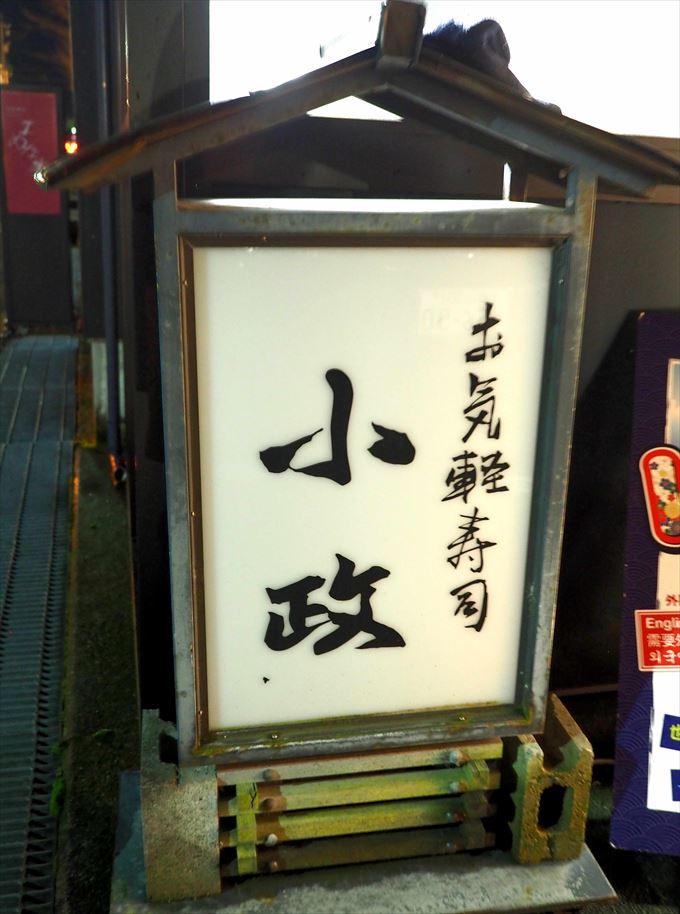 お気軽寿司
小政
Engli
需要
외국